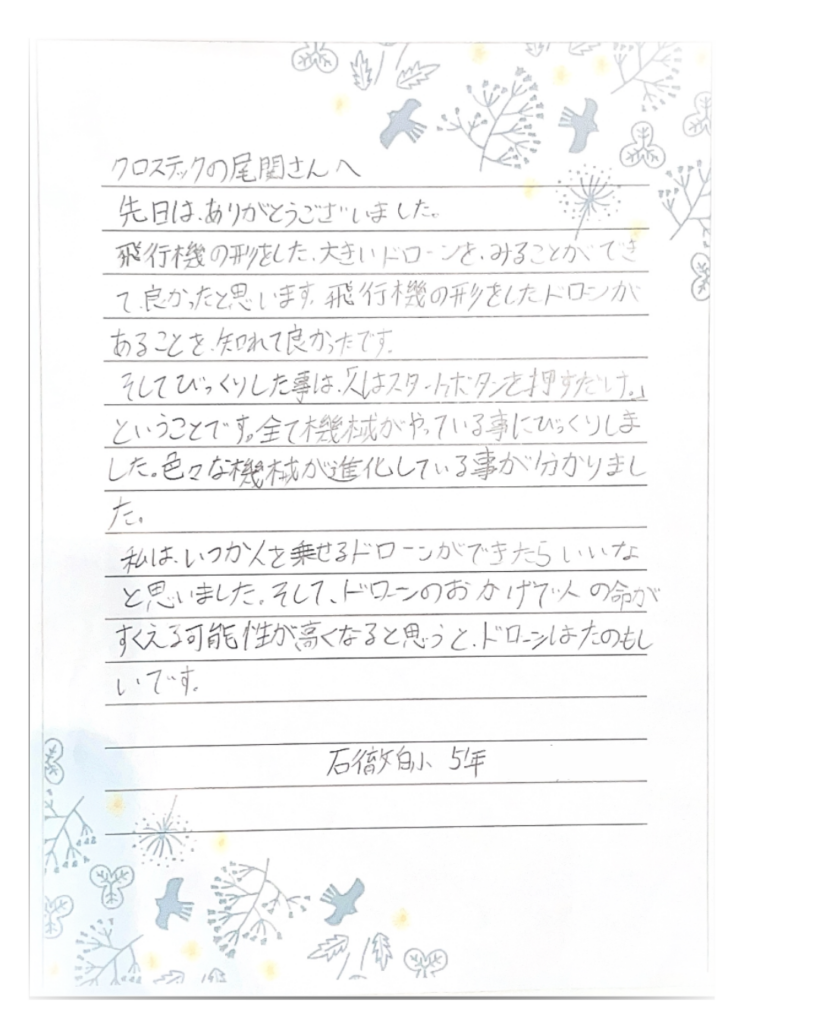 クロステックの尾関さんへ
先日は、ありがとうございました。
飛行機の形をした、大きいドローンを、みることができ
て、良かったと思います。飛行機の形をしたドローンが
あることを、知れて良かったです。
そしてびっくりした事は、人はスタートボタンを押すだけ。」
ということです。全て機械がやっている事にびっくりしま
した。色々な機械が進化している事が分かりまし
た。
私は、いつか人を乗せるドローンができたらいいな
と思いました。そして、ドローンのおかげで人の命が
すくえる可能性が高くなると思うと、ドローンはたのもし
いです。
石徹白小 5年